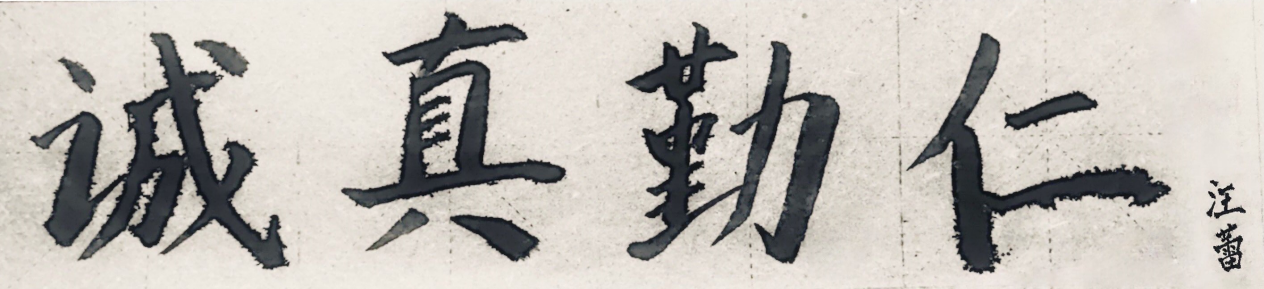 诚真勤仁
汪蕾